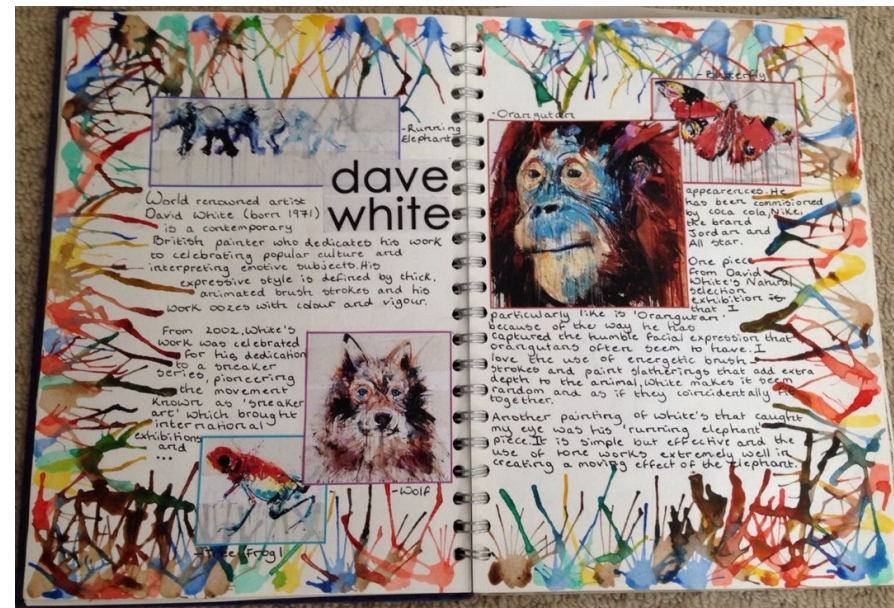 -Running
Elephant
dave
white
World renowned artist
David White (born 1971)
is a contemporary
British painter who dedicates his work
to celebrating popular culture and
interpreting emotive subjects. His
expressive style is defined by thick,
animated brush strokes and his
work oozes with colour and vigour.
From 2002, White's
work was celebrated
for his dedication
to a sneaker
series, pioneering
the movement
known as 'sneaker
art' which brought
international
exhibitions
and
...
-Wolf
-Tree Frog
-Orangutan
-Butterfly
appearences. He
has been commisioned
by coca cola, Nike,
the brand
Jordan and
All star.
One piece
from David
White's Natural
selection
exhibition is
that I
particularly like is 'Orangutan'
because of the way he has
captured the humble facial expression that
orangutans often seem to have. I
love the use of energetic brush
strokes and paint slatherings that add extra
depth to the animal, White makes it seem
random and as if they coincidentally fit
together.
Another painting of White's that caught
my eye was his 'running elephant'
piece. It is simple but effective and the
use of tone works extremely well in
creating a moving effect of the elephant.